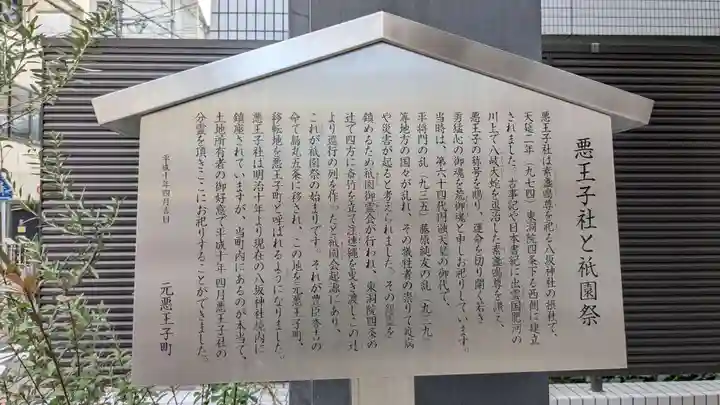 悪王子社と祇園祭
悪王子社は素盞嗚尊を祀る八坂神社の摂社で、
天延二年（九七四）東洞院四条下る西側に建立
されました。古事記や日本書紀に出雲国肥河の
川上で八岐大蛇を退治した素盞嗚尊を讃え、
悪王子の称号を贈り、運命を切り開く若き
勇猛心の御魂を荒御魂と申しお祀りしています。
当時は、第六十四代円融天皇の御代で、
平将門の乱（九三五）藤原純友の乱（九三九）
等地方の国々が乱れ、その犠牲者の祟りで疫病
や災害が起ると考えられました。その
鎮めるため祇園御霊会が行われ、東洞院四条の
辻で四方に斎竹を立て注連縄を曳き渡しこの辻
より巡行の列を作ったと祇園会起源にあり、
これが祇園祭の始まりです。それが豊臣秀吉の
命で烏丸五条に移され、この地を元悪王子町、
移転地を悪王子町と呼ばれるようになりました。
悪王子社は明治十年より現在の八坂神社境内に
鎮座されていますが、当町内にあるのが本当で、
土地所有者の御好意で平成十年四月悪王子社の
分霊を頂きここにお祀りすることができました。
平成十年四月吉日
元悪王子町